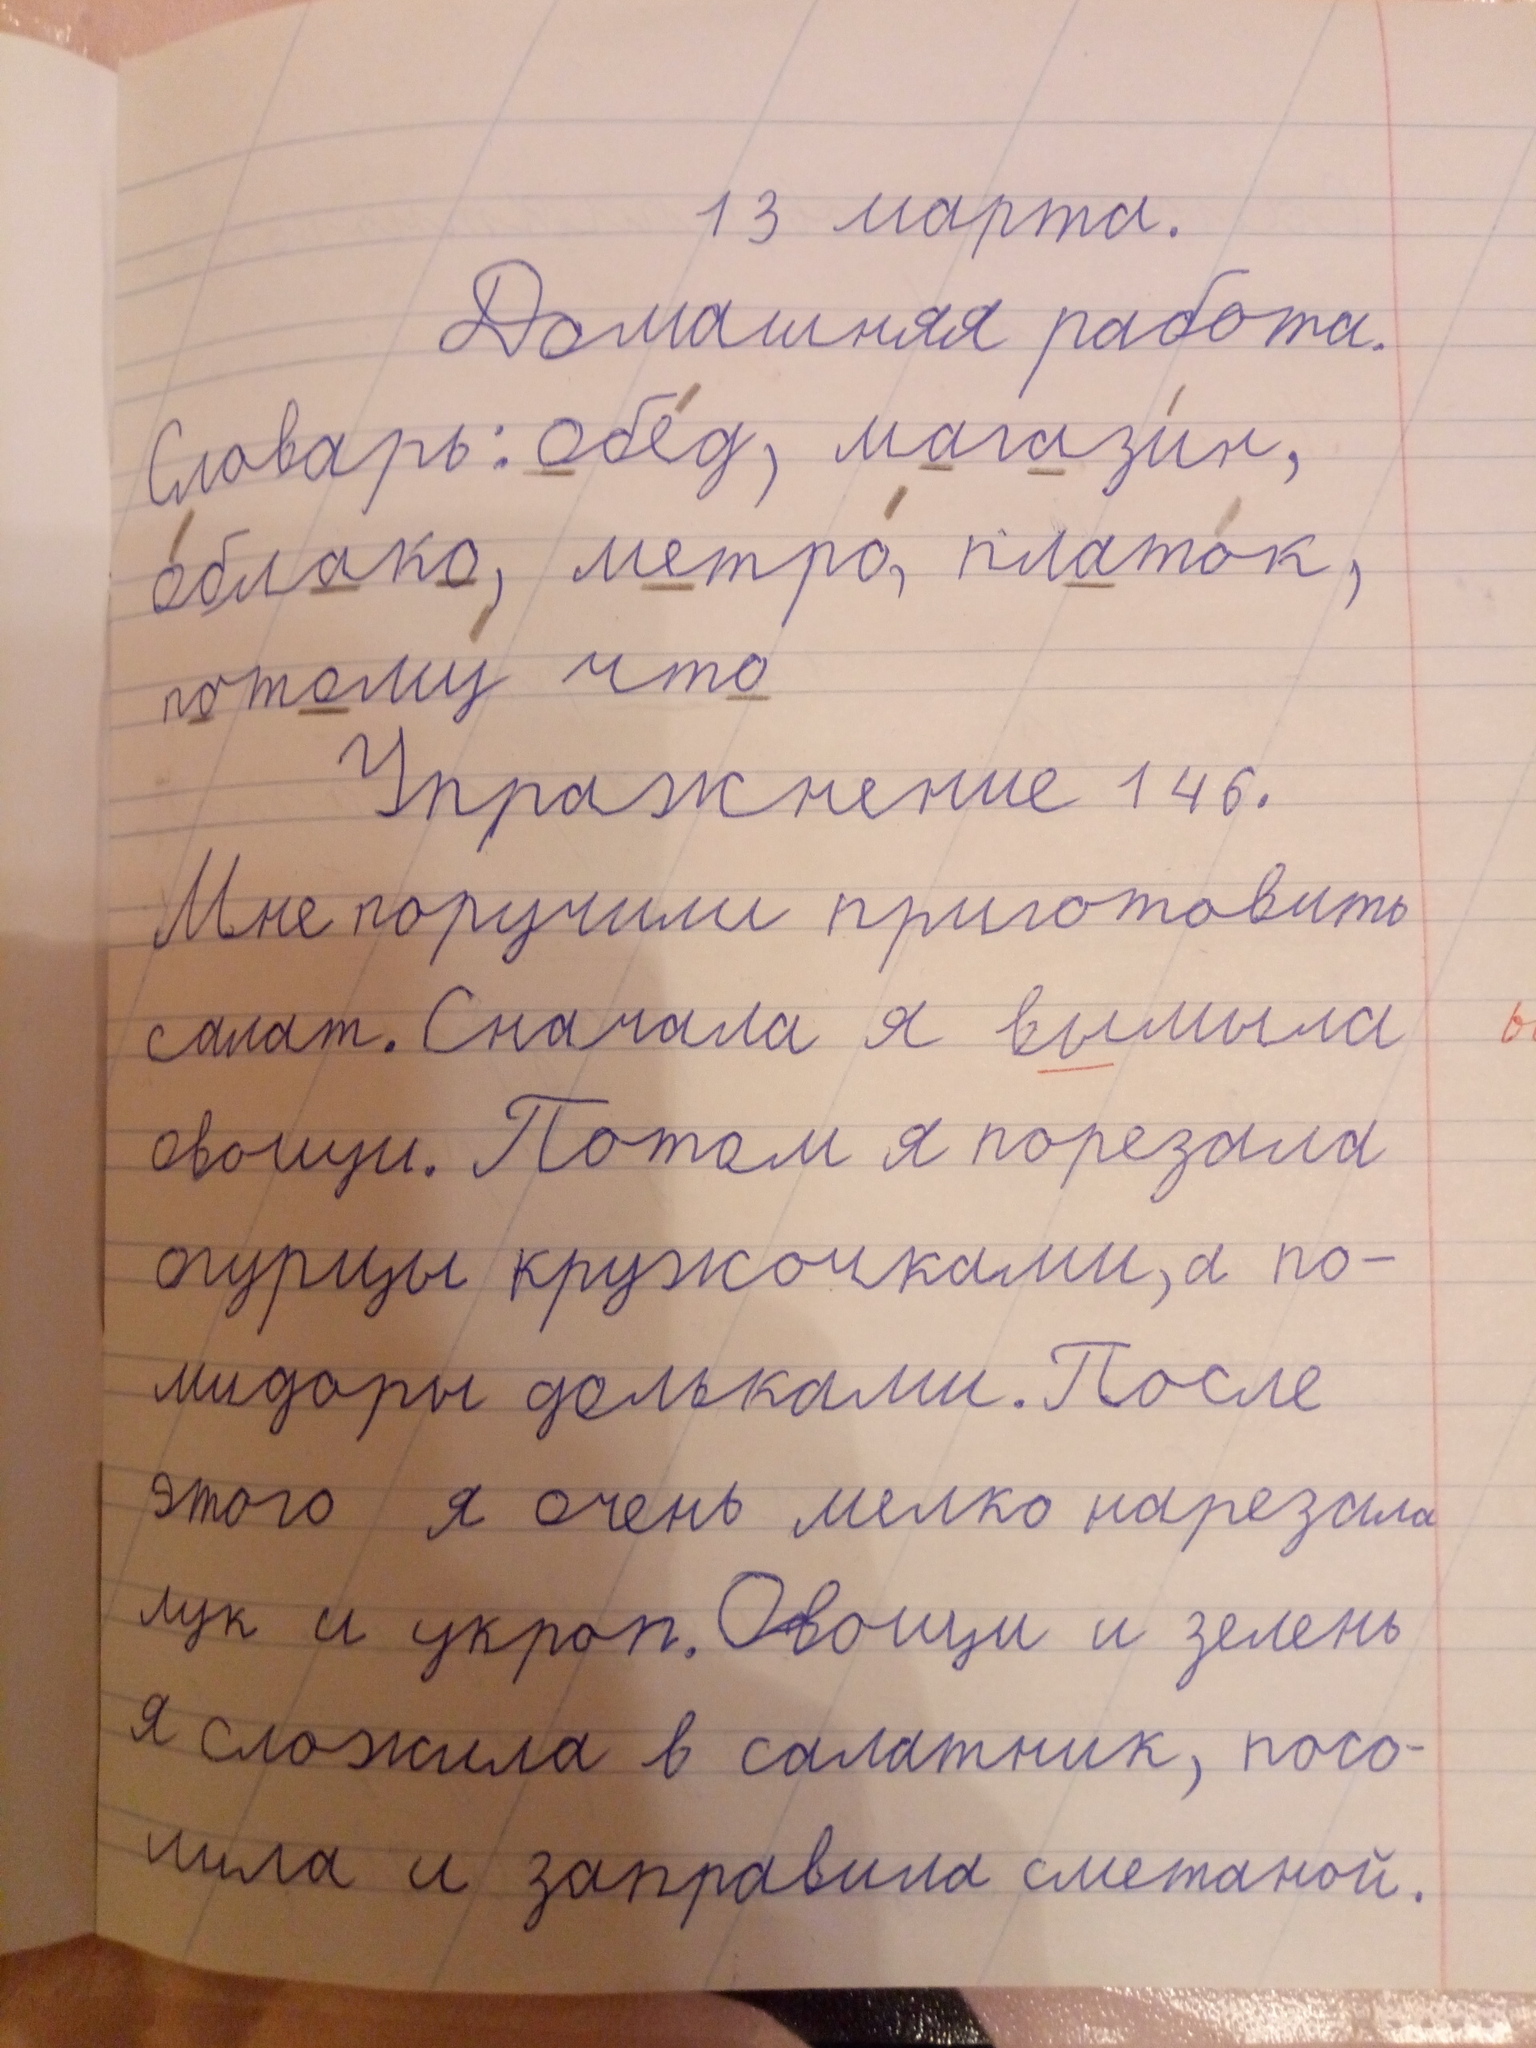 13 марта.
Домашняя работа.
Словарь: обе́д, магази́н,
о́блако, метро́, плато́к,
потому́ что
Упражнение 146.
Мне поручили приготовить
салат. Сначала я вымыла
овощи. Потом я порезала
огурцы кружочками, а по-
мидоры дольками. После
этого я очень мелко нарезала
лук и укроп. Овощи и зелень
я сложила в салатник, посо-
лила и заправила сметаной.